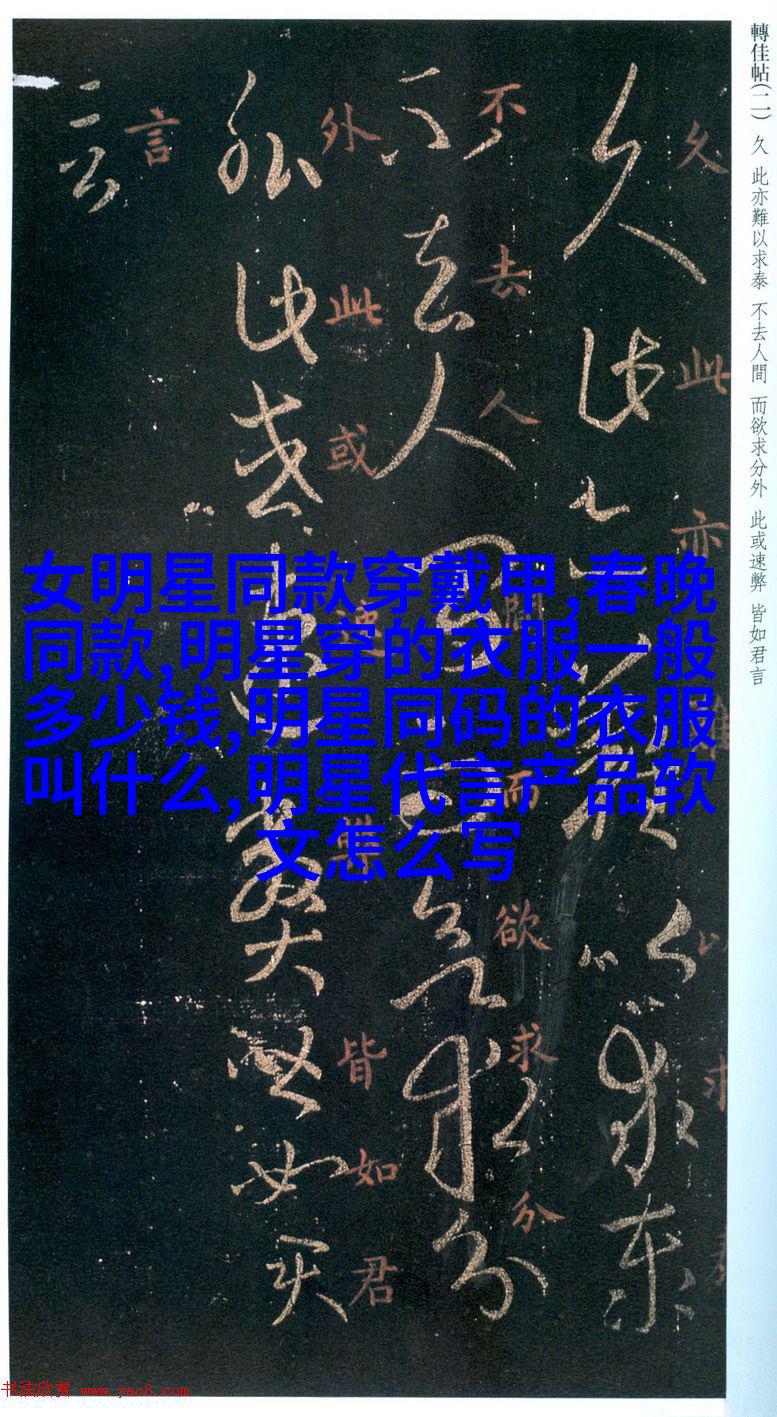 轉佳帖(二) 久 此亦難以求泰 不去人間 而欲求分外 此或速弊 皆如君言
久此亦難以求泰
不去人間而欲求分
外此或速弊皆如君
言
久此亦難以求
不去人間而欲求分
外此或速弊皆如君
言
女明星同款穿戴甲,春晚
同款,明星穿的衣服一般
多少钱,明星同码的衣服
叫什么,明星代言产品软
文怎么写
书法欣赏 www.yac8.com